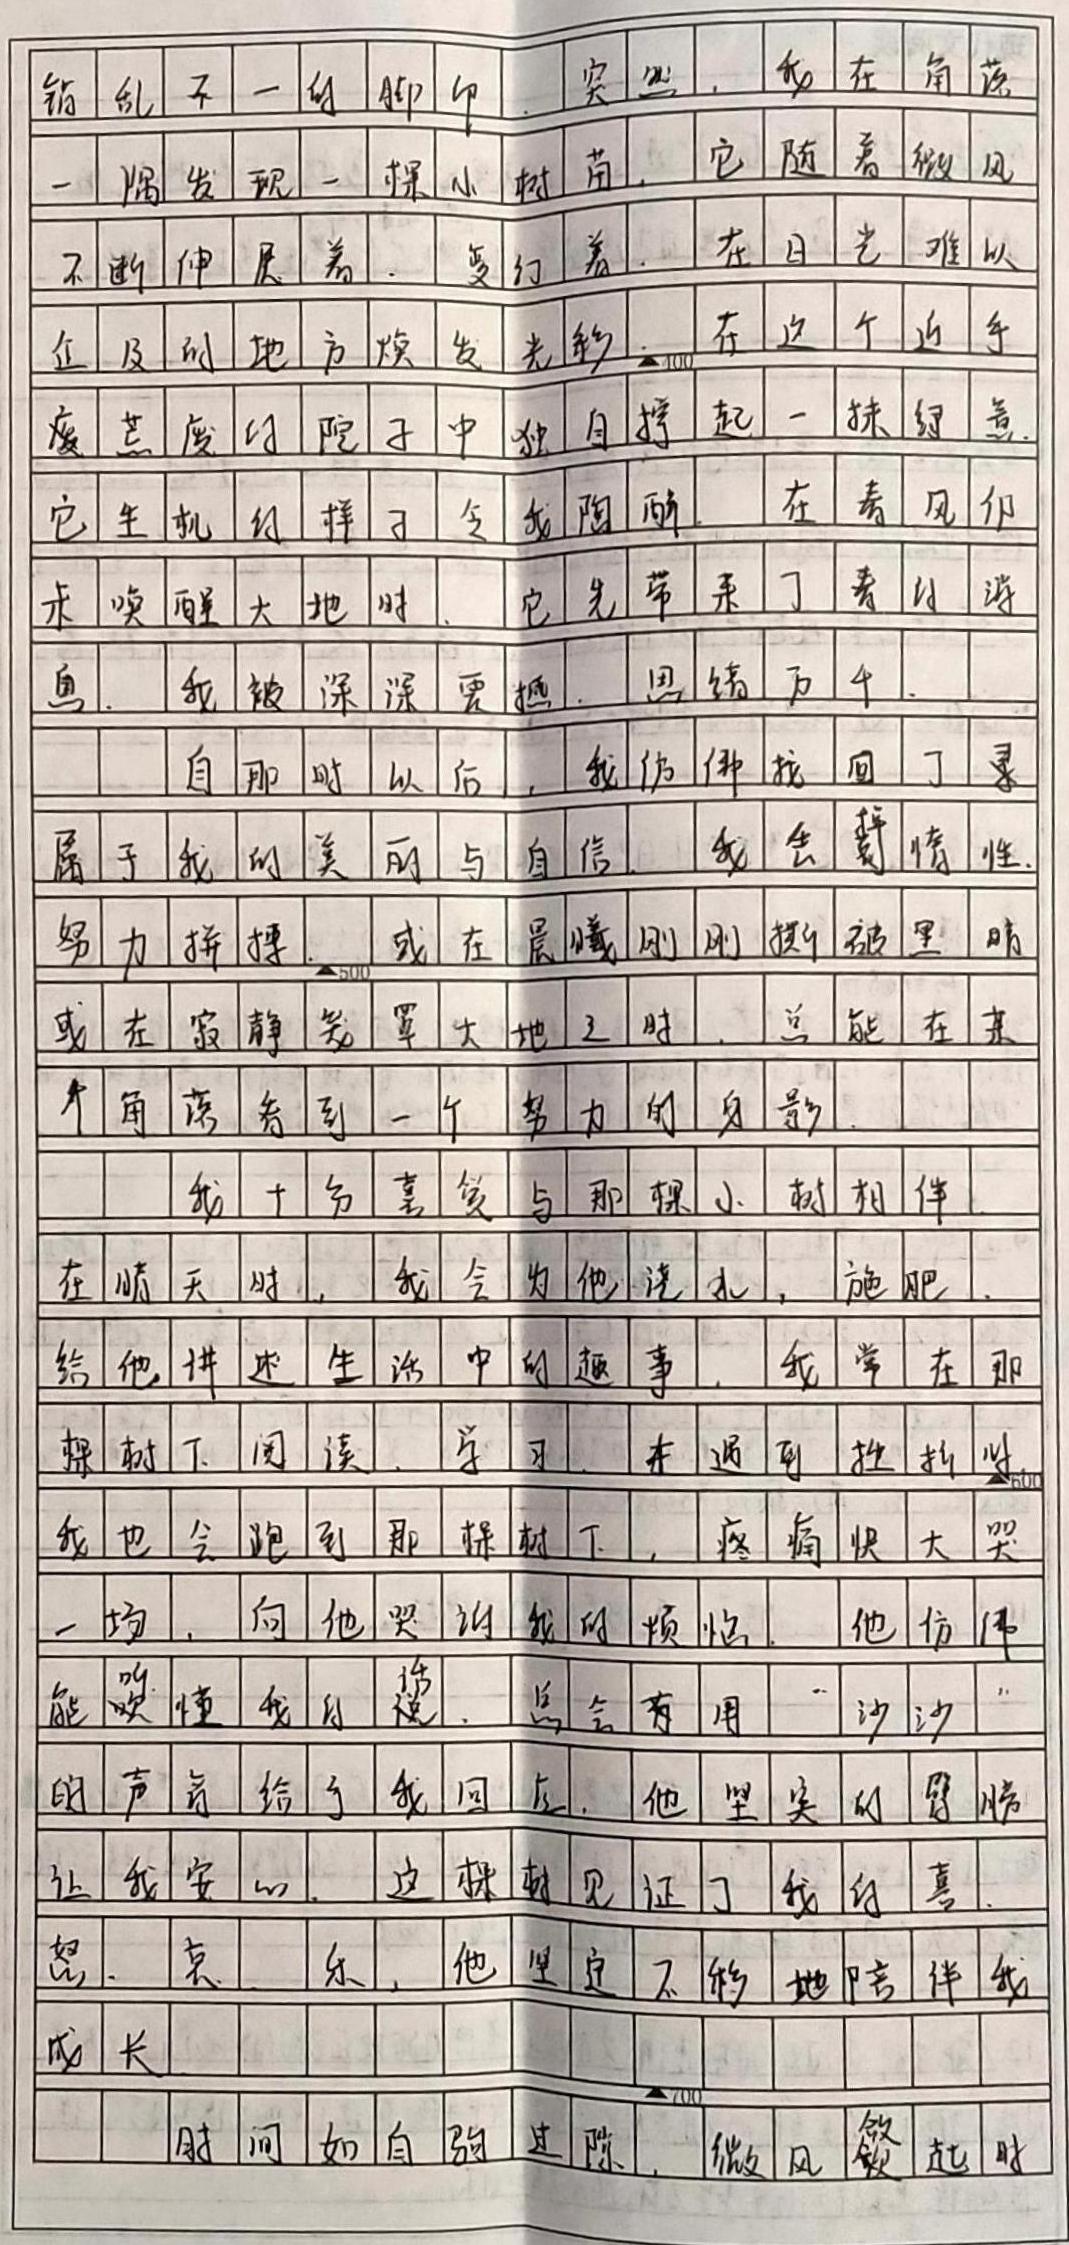 错乱不一的脚印。突然,我在角落
一隅发现一棵小树苗,它随着微风
不断伸展着.变幻着.在日光难以
企及的地方焕发光彩.在这个近乎
▲400
废荒废的院子中独自撑起一抹绿意.
它生机的样子令我陶醉.在春风仍
未唤醒大地时.它先带来了春的消
息.我被深深震撼.思绪万千.
自那时以后,我仿佛找回了
属于我的美丽与自信.我告惰性.
努力拼搏.或在晨曦刚刚撕破黑暗
▲500
或在寂静笼罩大地之时.总能在某
个角落看到一个努力的身影.
我十分喜爱与那棵小树相伴.
在晴天时,我会为他浇水,施肥.
给他讲述生活中的趣事.我常在那
棵树下阅读.学习.在遇到挫折时
▲600
我也会跑到那棵树下,疼痛快大哭
一场,向他哭诉我的烦恼.他仿佛
能听懂我的话.总会有用“沙沙”
的声音给予我回应.他坚实的臂膀
让我安心.这棵树见证了我的喜.
怒.哀.乐,他坚定不移地陪伴我
成长
▲700
时间如白驹过隙,微风敛起时